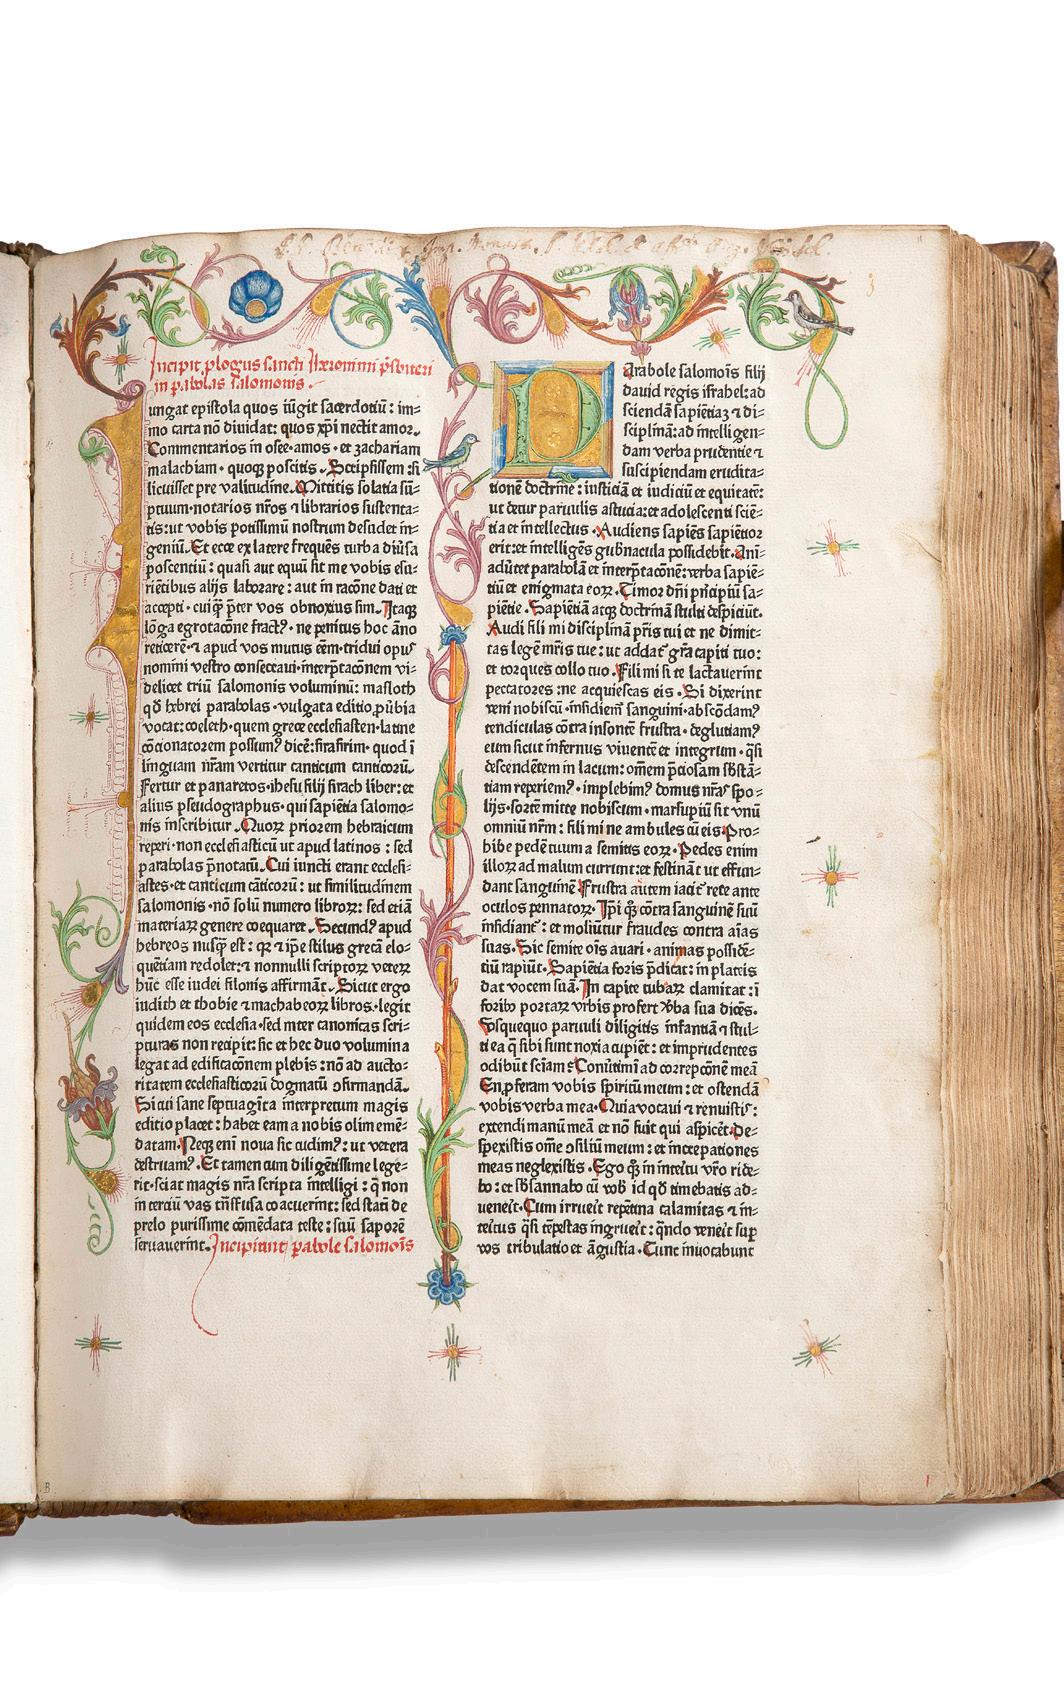 Imp. Monast. S. Udal. & Afrę Aug. Vindel.
3
Incipit ꝓlogus sancti Iheronimi p̄sbiteri
in pabolas salomonis.
Iungat epistola quos iūgit sacerdotiū: im=
mo carta nō diuidat: quos xp̄i nectit amor.
Commentarios in osee·amos·et zachariam
malachiam·quoqȝ poscitis. Scripsissem: si
licuisset pre valitudine. Mittitis solatia sū=
ptuum·notarios nr̄os ⁊ librarios sustenta=
tis: ut vobis potissimū nostrum desudet in=
geniū. Et ecce ex latere frequēs turba diu̾sa
poscentiū: quasi aut equū sit me vobis esu=
riētibus alijs laborare: aut in racōne dati et
accepti·cuiqȝ p̄ter vos obnoxius sim. Itaqȝ
lōga egrotacōne fractꝰ·ne penitus hoc āno
reticerē·⁊ apud vos mutus eēm·tridui opus
nomini vestro consecraui·interp̄tacōnem vi=
delicet triū salomonis voluminū: masloth
qd̄ hebrei parabolas·vulgata editio ꝓu̾bia
vocat: coeleth·quem grece ecclesiasten·latine
cōcionatorem possumꝰ dicē: sirasirim·quod ī
linguam nr̄am vertitur canticum canticorū.
Fertur et panaretos·ihesu filij sirach liber: et
alius pseudographus·qui sapiētia salomo=
nis inscribitur. Quoꝝ priorem hebraicum
reperi·non ecclesiasticū ut apud latinos: sed
parabolas p̄notatū. Cui iuncti erant ecclesi=
astes·et canticum cāticorū: ut similitudinem
salomonis·nō solū numero libroꝝ: sed etiā
materiaꝝ genere coequaret. Secundꝰ apud
hebreos nusqȝ est: qꝛ ⁊ ip̄e stilus grecā elo=
quētiam redolet: ⁊ nonnulli scriptoꝝ veteꝝ
hūc esse iudei filonis affirmāt. Sicut ergo
iudith et thobie ⁊ machabeoꝝ libros·legit
quidem eos ecclesia·sed inter canonicas scri=
pturas non recipit: sic et hec duo volumina
legat ad edificacōnem plebis: nō ad aucto=
ritatem ecclesiasticorū dogmatū ꝯfirmandā.
Si cui sane septuagīta interpretum magis
editio placet: habet eam a nobis olim emē=
datam. Neqȝ enī noua sic cudimꝰ: ut vetera
destruamꝰ. Et tamen cum diligētissime lege=
rit·sciat magis nr̄a scripta intelligi: q̄ non
in terciū vas trāsfusa coacuerint: sed stati de
prelo purissime cōmēdata teste: suū saporē
seruauerint. Incipiunt pabole salomois
Parabole salomōis filij
dauid regis israhel: ad
sciendā sapiētiaȝ ⁊ di=
sciplinā: ad intelligen=
dam verba prudentie ⁊
suscipiendam erudita=
tionē doctrine: iusticiā et iudiciū et equitatē:
ut detur paruulis astucia: et adolescenti sciē=
tia et intellectus. Audiens sapiēs sapiētior
erit: et intelligēs gub̾nacula possidebit. Ani=
adūtet parabolā et interp̄tacōnē: verba sapiē=
tiū et enigmata eoꝝ. Timor dn̄i pn̄cipiū sa=
piētie. Sapiētiā atqȝ doctrinā stulti despiciūt.
Audi fili mi disciplinā pr̄is tui et ne dimit=
tas legē mr̄is tue: ut addat᷑ gr̄a capiti tuo:
et torques collo tuo. Fili mi si te lactauerint
peccatores: ne acquiescas eis. Si dixerint
veni nobiscū·insidiem᷑ sanguini·abscōdamꝰ
tendiculas cōtra insontē frustra·deglutiamꝰ
eum sicut infernus viuentē et integrum·q̄si
descendētem in lacum: omēm p̄ciosam sb̄stā=
tiam reperiemꝰ·implebimꝰ domus nr̄as spo=
lijs·sortē mitte nobiscum·marsupiū sit vnū
omniū nrm̄: fili mi ne ambules cū eis. Pro=
hibe pedē tuum a semitis eoꝝ. Pedes enim
illoꝝ ad malum currunt: et festināt ut effun=
dant sanguinē. Frustra autem iacit᷑ rete ante
oculos pennatoꝝ. Ip̄i qȝ cōtra sanguinē suū
insidiant᷑: et moliuntur fraudes contra aīas
suas. Sic semite oīs auari·animas possidē=
tiū rapiūt. Sapiētia foris p̄dicat: in plateis
dat vocem suā. In capite turbaꝝ clamitat: ī
foribꝰ portaꝝ vrbis profert v̾ba sua dicēs.
Vsquequo paruuli diligitis infantiā ⁊ stul=
ti ea q̄ sibi sunt noxia cupiēt: et imprudentes
odibūt sciam̄: Conu̾timī ad correpcōnē meā
En ꝓferam vobis spiritū meum: et ostendā
vobis verba mea. Quia vocaui ⁊ renuistis:
extendi manū meā et nō fuit qui aspicēt. De=
spexistis omē ꝯsiliū meum: et increpationes
meas neglexistis. Ego qȝ in int̾itu vr̄o ride=
bo: et sb̄sannabo cū vob̄ id qd̄ timebatis ad=
uenēit. Cum irruēit repētina calamitas ⁊ in=
teritus q̄si tēpestas ingruēit: qn̄do venēit sup̄
vos tribulatio et āgustia. Tunc inuocabunt